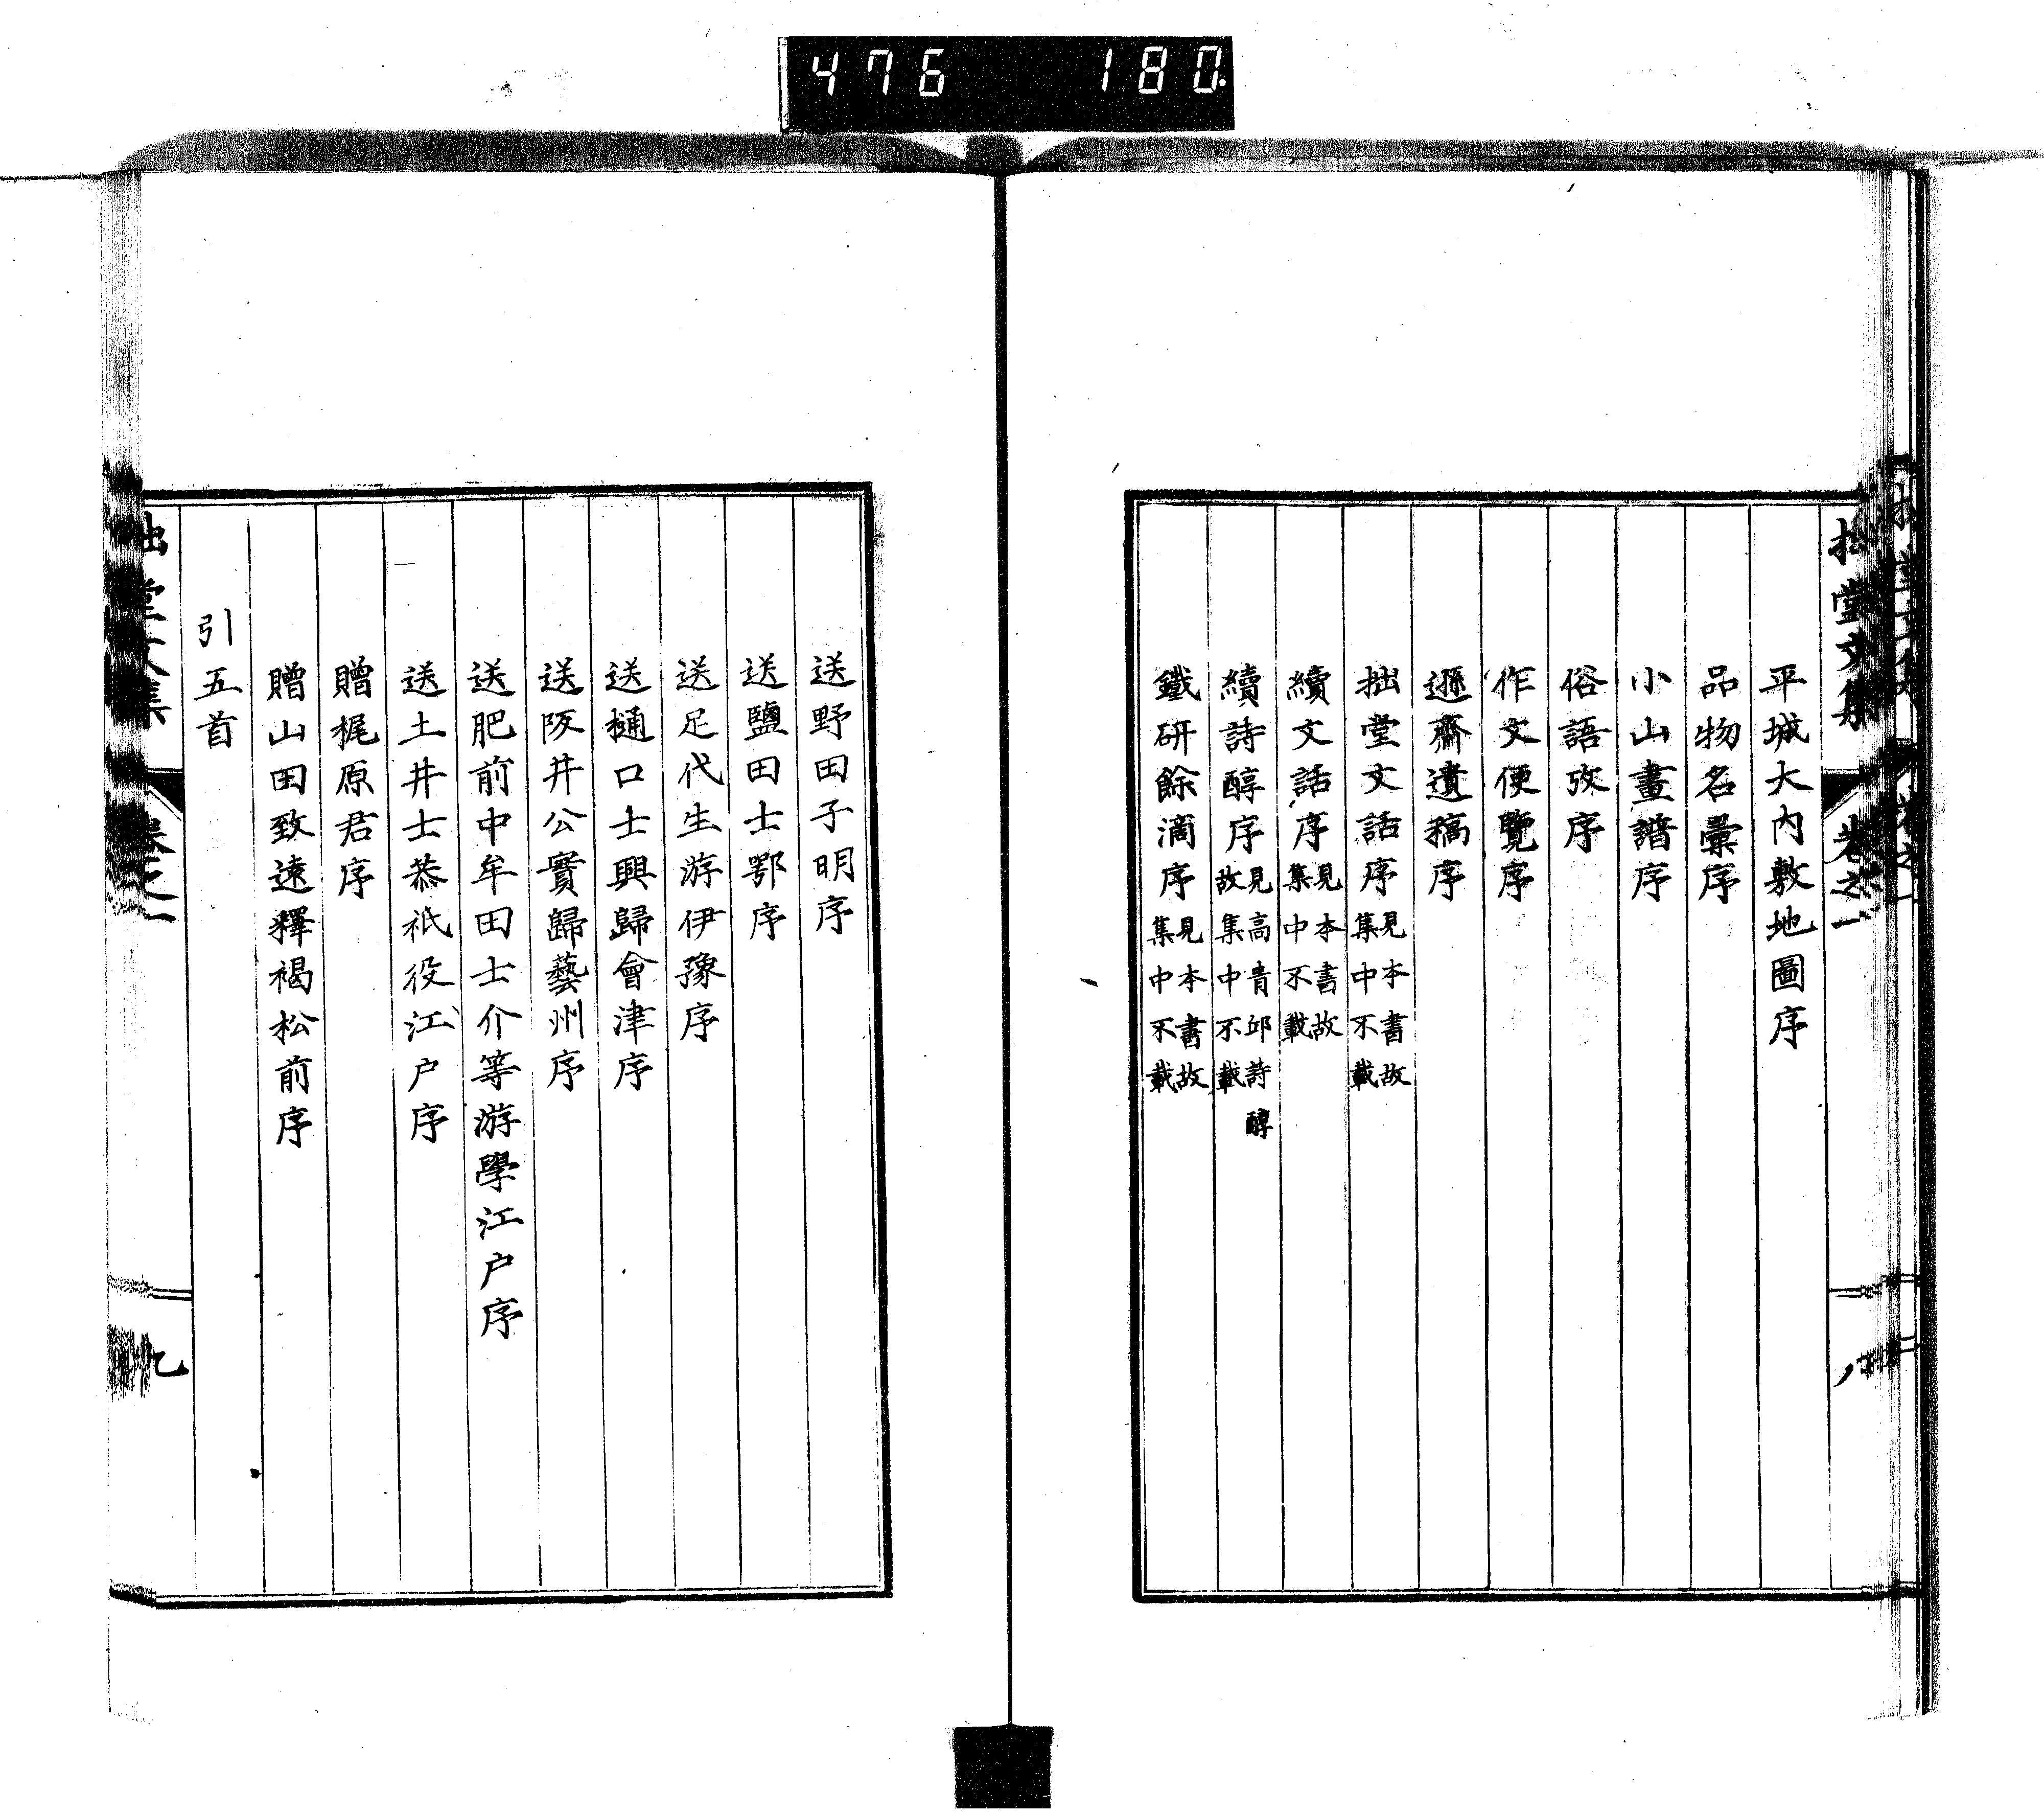 476 180
拙堂文集 卷之一
平城大內敷地圖序
品物名彙序
小山畫譜序
俗語攷序
作文便覽序
遜齋遺稿序
拙堂文話序 見本書故集中不載
續文話序 見本書故集中不載
續詩醇序 見高青邱詩醇故集中不載
鐵研餘滴序 見本書故集中不載
送野田子明序
送鹽田士鄂序
送足代生游伊豫序
送樋口士興歸會津序
送阪井公實歸藝州序
送肥前中牟田士介等游學江户序
送土井士恭祇役江户序
贈梶原君序
贈山田致遠釋褐松前序
引五首
拙堂文集 卷之一